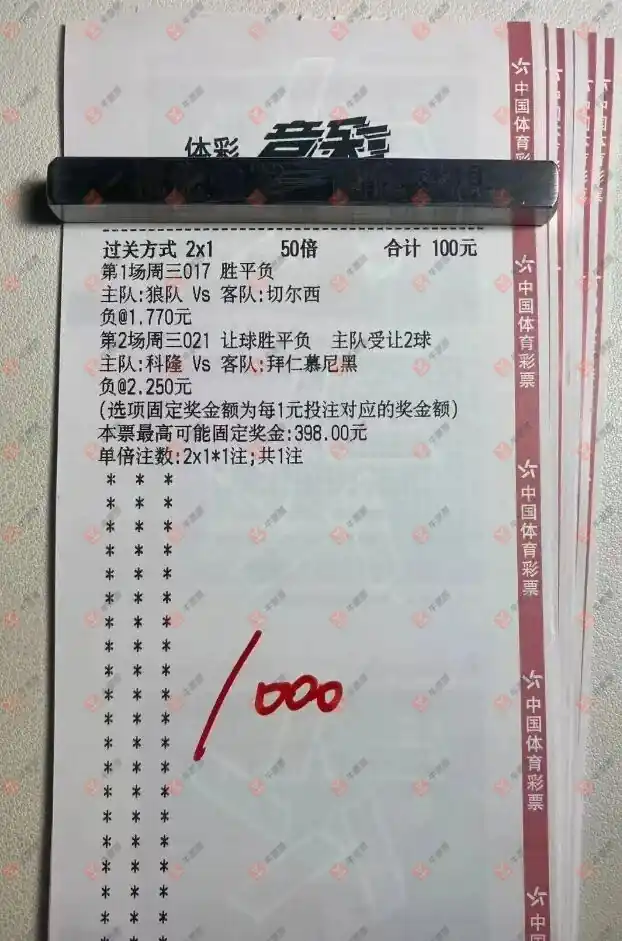 体彩 竞彩
过关方式 2x1 50倍 合计 100元
第1场周三017 胜平负
主队:狼队 Vs 客队:切尔西
负@1.770元
第2场周三021 让球胜平负 主队受让2球
主队:科隆 Vs 客队:拜仁慕尼黑
负@2.250元
(选项固定奖金额为每1元投注对应的奖金额)
本票最高可能固定奖金:398.00元
单倍注数:2x1*1注;共1注
* * *
* * *
* * *
* * *
* * *
* * *
* * *
* * *
* * *
* * *
* * *
* * *
* * *
* * *
* * *
* * *
* * *
* * *
* * *
* * *
1000
中国体育彩
中国体育彩票
中国体育彩票
中国体育彩票
中国